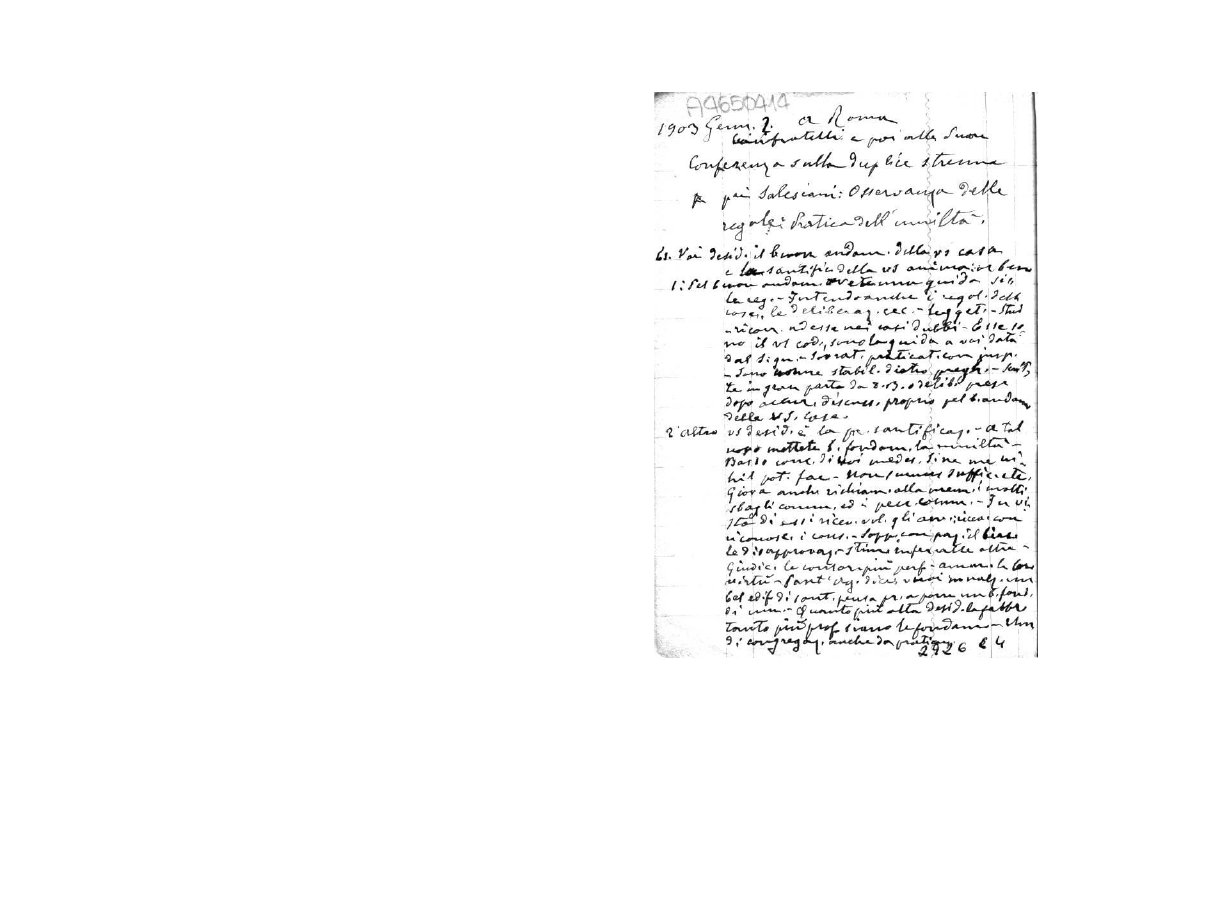 A4650414
1903 Genn. 2. a Roma
Confratelli e poi alle Suore
Conferenza sulla duplice strenna
pei Salesiani: Osservanza delle
regole; Pratica dell'umiltà.
Es. Voi desid. il buon andam. della vs casa
e la santific della vs anima
1: Pel buon andam. avete una guida
le reg. - Intendo anche i regol. delle
case, le deliberaz. ecc. -
- ricorr. ad esse nei casi dubbi - Esse so
no il vs cod., sono la guida a voi data
dal Sign. - praticat. con
- Sono norme stabil. dietro pregh. -
te in gran parte da D.B. o delib. prese
dopo accur. discuss. proprio pel b. andam
delle vs. case.
2° altro vs desid. è la pr. santificaz. - A tal
uopo mettete b. fondam. la umiltà -
Basso conc. di voi medes. Sine me ni
hil pot. fac - Non sumus suffic. etc.
Giova anche richiam. alla mem. i molti
sbagli comm. ed i pecc. comm. - In vi
sta di essi ricev. vol. gli avv.; ricev. con
riconosc. i cons. - Sopp. con paz. il bias
le disapprovaz. - stim. infer. alle altre -
Giudic. le consor. più perf - amm. le loro
virtù - Sant'Ag. dice: vuoi innalz. un
bel edif. di sant. pensa pr. a porre un b. fond.
di um. - Quanto più alta desid. la fabbr
tanto più prof. siano le fondam. - Um
di congregaz. anche da pratic
2926 E4